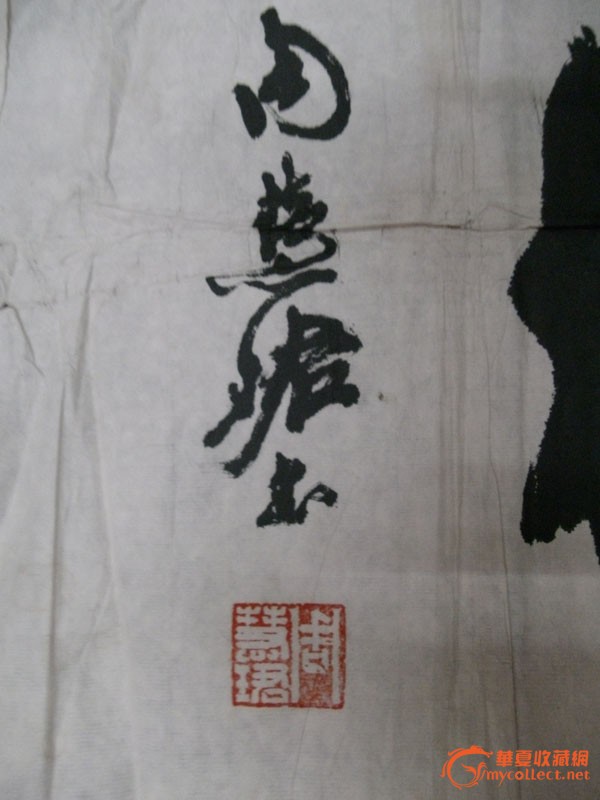 周慧珺书
周慧珺
華夏收藏網
mycollect.net